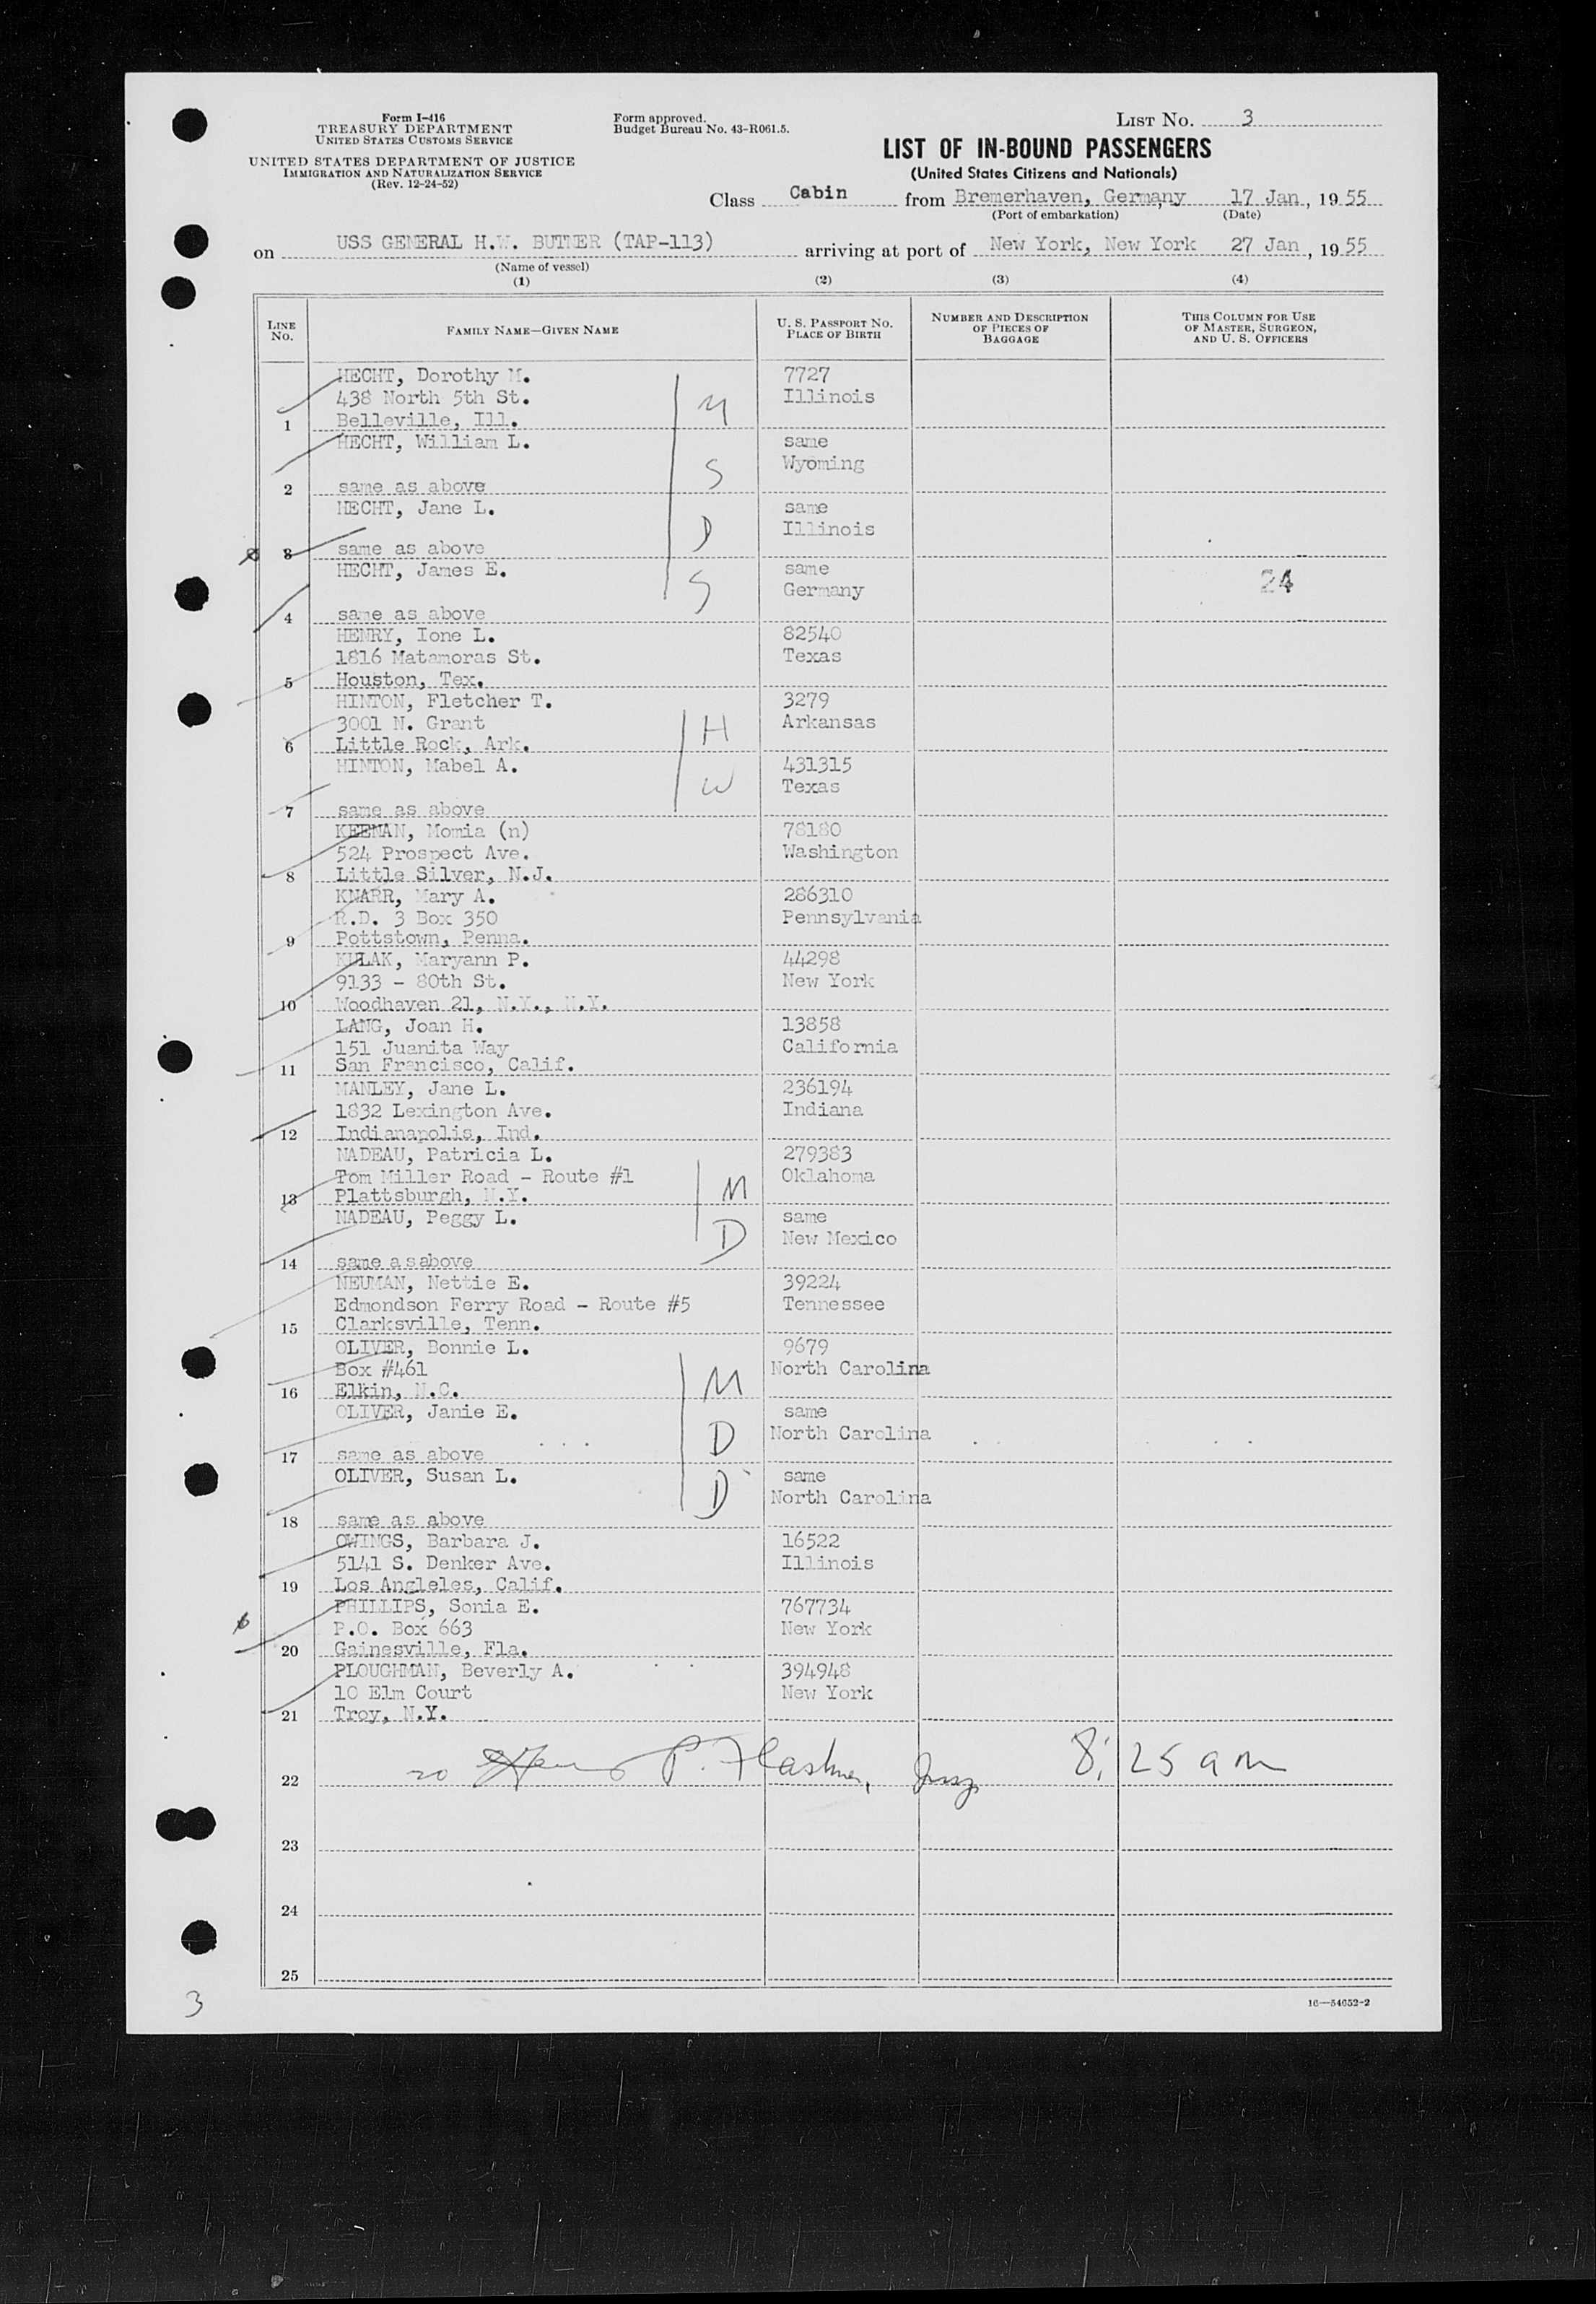 Form I-416
TREASURY DEPARTMENT
UNITED STATES CUSTOMS SERVICE
UNITED STATES DEPARTMENT OF JUSTICE
IMMIGRATION AND NATURALIZATION SERVICE
(Rev. 12-24-52)
Form approved.
Budget Bureau No. 43-R061.5.
LIST No. 3
LIST OF IN-BOUND PASSENGERS
(United States Citizens and Nationals)
Class Cabin from Bremerhaven, Germany, 17 Jan, 1955
(Port of embarkation) (Date)
on USS GENERAL H.W. BUTNER (TAP-113) arriving at port of New York, New York 27 Jan, 1955
(Name of vessel)
(1) (2) (3) (4)
LINE No. FAMILY NAME—GIVEN NAME U. S. PASSPORT No. PLACE OF BIRTH NUMBER AND DESCRIPTION OF PIECES OF BAGGAGE THIS COLUMN FOR USE OF MASTER, SURGEON, AND U. S. OFFICERS
HECHT, Dorothy M. 7727
438 North 5th St. M Illinois
1 Belleville, Ill.
HECHT, William L. same
S Wyoming
2 same as above
HECHT, Jane L. same
D Illinois
3 same as above
HECHT, James E. same
S Germany 24
4 same as above
HENRY, Ione L. 82540
1816 Matamoras St. Texas
5 Houston, Tex.
HINTON, Fletcher T. 3279
3001 N. Grant H Arkansas
6 Little Rock, Ark.
HINTON, Mabel A. 431315
W Texas
7 same as above
KEENAN, Momia (n) 78180
524 Prospect Ave. Washington
8 Little Silver, N.J.
KNARR, Mary A. 286310
R.D. 3 Box 350 Pennsylvania
9 Pottstown, Penna.
KULAK, Maryann P. 44298
9133 - 80th St. New York
10 Woodhaven 21, N.Y., N.Y.
LANG, Joan H. 13858
151 Juanita Way California
11 San Francisco, Calif.
MANLEY, Jane L. 236194
1832 Lexington Ave. Indiana
12 Indianapolis, Ind.
NADEAU, Patricia L. 279383
Tom Miller Road - Route #1 Oklahoma
13 Plattsburgh, N.Y. M
NADEAU, Peggy L. same
D New Mexico
14 same as above
NEUMAN, Nettie E. 39224
Edmondson Ferry Road - Route #5 Tennessee
15 Clarksville, Tenn.
OLIVER, Bonnie L. 9679
Box #461 North Carolina
16 Elkin, N.C. M
OLIVER, Janie E. same
D North Carolina
17 same as above
OLIVER, Susan L. same
D North Carolina
18 same as above
OWINGS, Barbara J. 16522
5141 S. Denker Ave. Illinois
19 Los Angleles, Calif.
PHILLIPS, Sonia E. 767734
P.O. Box 663 New York
20 Gainesville, Fla.
PLOUGHMAN, Beverly A. 394948
10 Elm Court New York
21 Troy, N.Y.
22 20 P. 8:25 am
23
24
25
3
16—54652-2